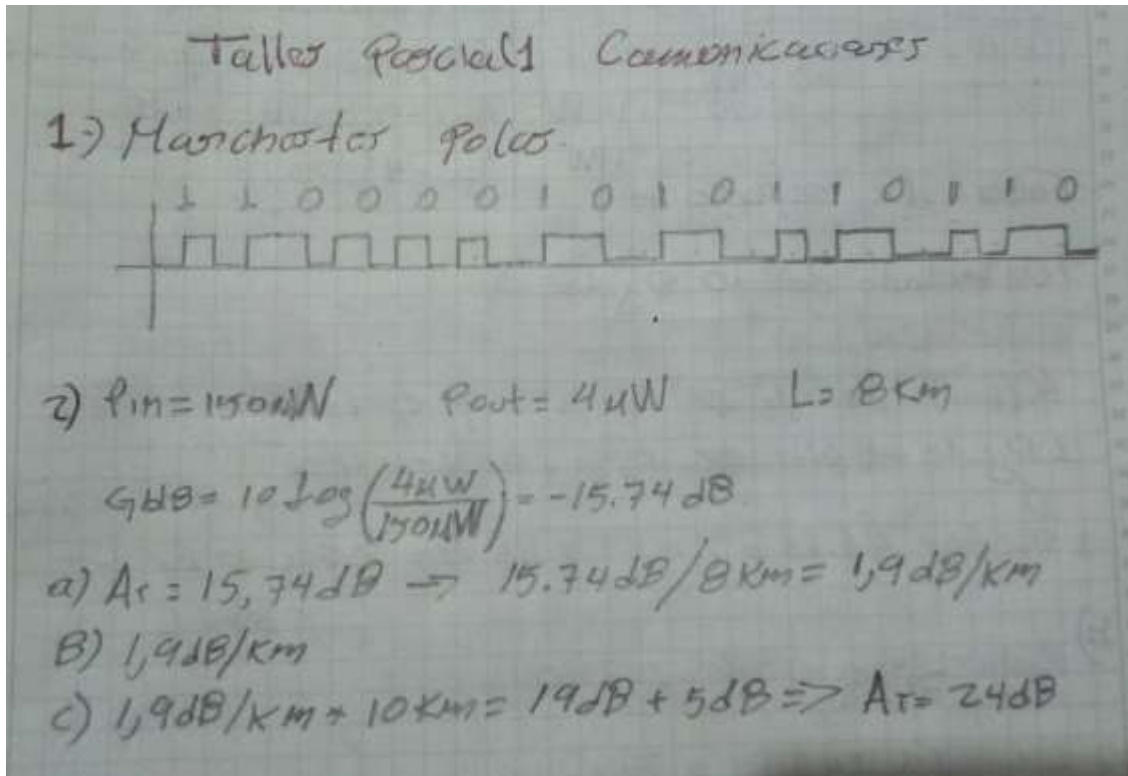 Taller Parcial 1 Comunicaciones
1-) Manchester Polar.
1 1 0 0 0 0 1 0 1 0 1 1 0 1 1 0
2) Pin = 150µW Pout = 4µW L= 8Km
GdB = 10 Log (4µW/150µW) = -15.74 dB
a) AT = 15,74dB → 15.74dB/8Km = 1,9dB/Km
B) 1,9dB/Km
c) 1,9dB/Km * 10Km = 19dB + 5dB => AT = 24dB